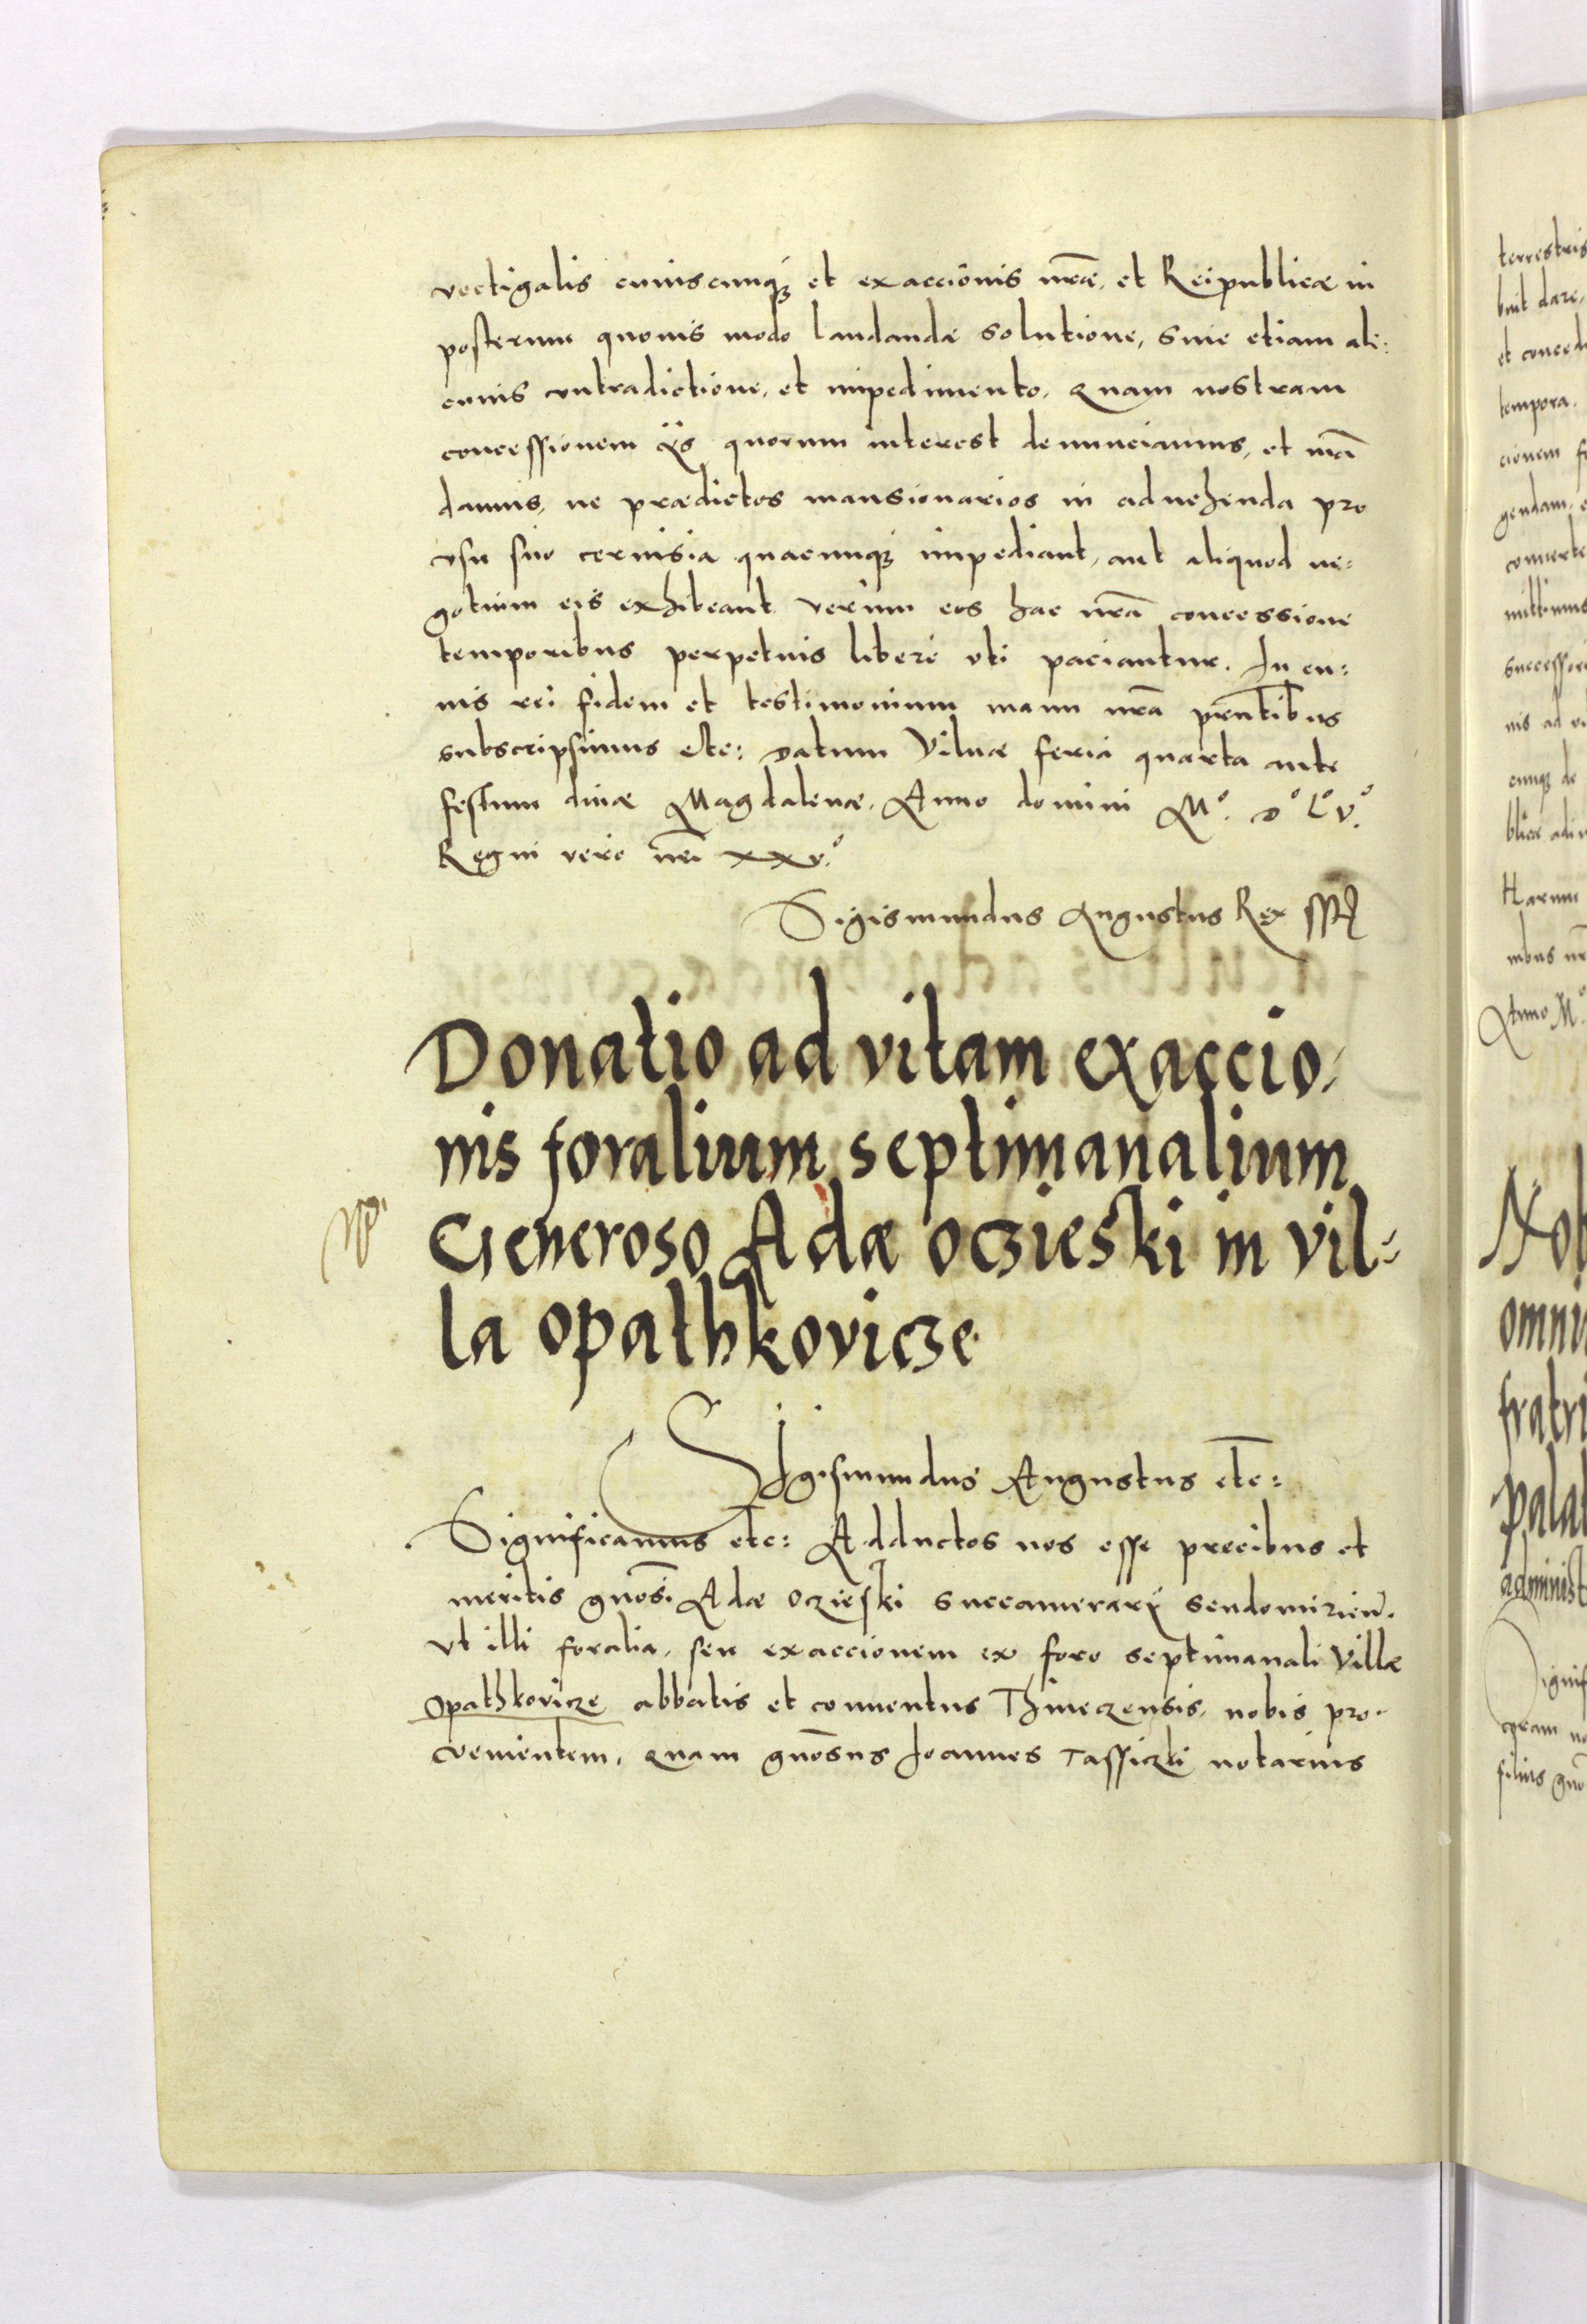 vectigalis cuiuscunq; et exaccionis nr̄ae, et Reipublicae in
posterum quovis modo laudandae solutione, sine etiam ali:
cuius contradictione, et impedimento. Quam nostram
concessionem ijs quorum interest denunciamus, et mā
damus, ne praedictos mansionarios in advehenda pro
usu suo cervisia quacunq; impediant, aut aliquod ne:
gotium eis exhibeant verum eos hac nr̄a concessione
temporibus perpetuis libere uti paciantur. In cu:
ius rei fidem et testimonium manu nr̄a pr̄ntibus
subscripsimus etc: Datum Vilnae feria quarta ante
festum divae Magdalenae. Anno domini M° D° L° V°.
Regni vero nr̄i xxv°.
Sigismundus Augustus Rex sst
Donatio ad vitam exaccio-
nis foralium septimanalium
Generoso Adae oczieski in vil=
la opathkovicze
Sigismundus Augustus etc:
Significamus etc: Adductos nos esse precibus et
meritis gnosi Adae Oczieski Succamerarij Sendomirien̄.
Ut illi foralia, seu exaccionem ex foro septimanali Villae
Opathkovicze abbatis et conventus Thinecensis, nobis pro-
venientem, quam gnōsus Joannes Tassiczki notarius
terrestris
buit dare,
et conced
tempora.
cionem f
gendam,
converte
mittimus
successor
nis ad vi
cunq; de
blicae
Harum
Anno M°
Nob
omni
fratri
palat
administ
Signif
filius gno